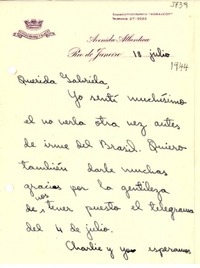 5F39
Avenida Atlantica
Rio de Janeiro 10 julio
1944
Querida Gabriela,
Yo sentí muchísimo
el no verla otra vez antes
de irme del Brasil. Quiero
también darle muchas
gracias por la gentileza
de nos tener puesto el telegrama
del 4 de julio.
Charlie y yo esperamos